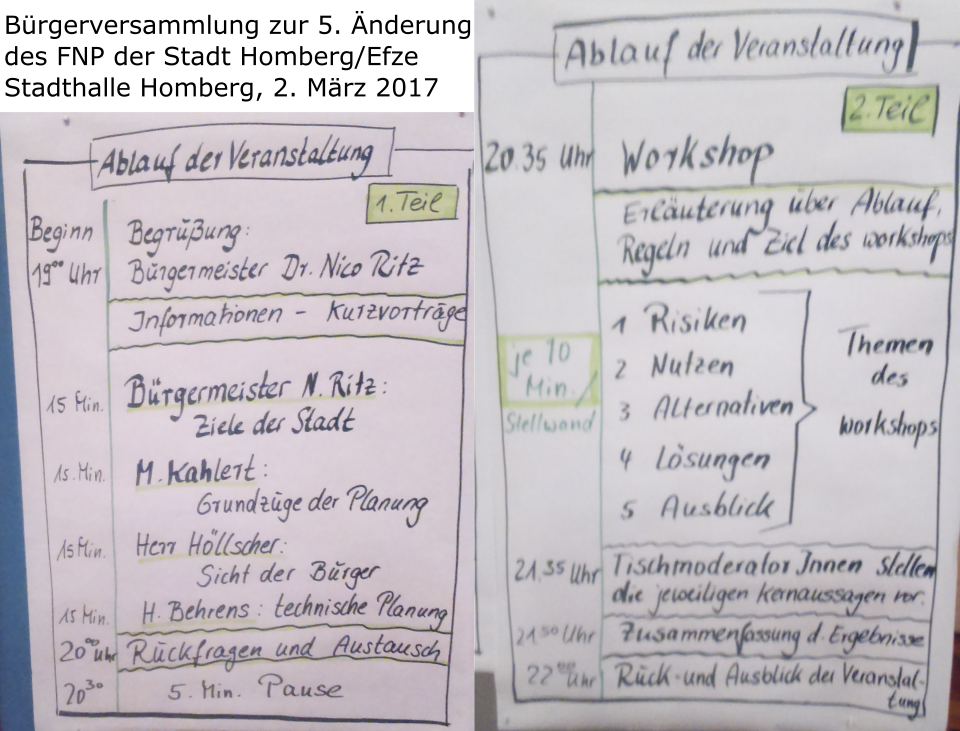 Bürgerversammlung zur 5. Änderung
des FNP der Stadt Homberg/Efze
Stadthalle Homberg, 2. März 2017
Ablauf der Veranstaltung
1. Teil
Beginn Begrüßung:
19⁰⁰ Uhr Bürgermeister Dr. Nico Ritz
Informationen - Kurzvorträge
15 Min. Bürgermeister N. Ritz:
Ziele der Stadt
15. Min. M. Kahlert:
Grundzüge der Planung
15 Min. Herr Höllscher:
Sicht der Bürger
15 Min. H. Behrens: technische Planung
20⁰⁰ Uhr Rückfragen und Austausch
20³⁰ 5. Min. Pause
Ablauf der Veranstaltung
2. Teil
20.35 Uhr Workshop
Erläuterung über Ablauf,
Regeln und Ziel des workshops
1 Risiken
2 Nutzen
3 Alternativen
4 Lösungen
5 Ausblick
Themen
des
workshops
je 10
Min./
Stellwand
21.35 Uhr Tischmoderator Innen stellen
die jeweiligen Kernaussagen vor.
21⁵⁰ Uhr Zusammenfassung d. Ergebnisse
22⁰⁰ Uhr Rück- und Ausblick der Veranstal-
tung